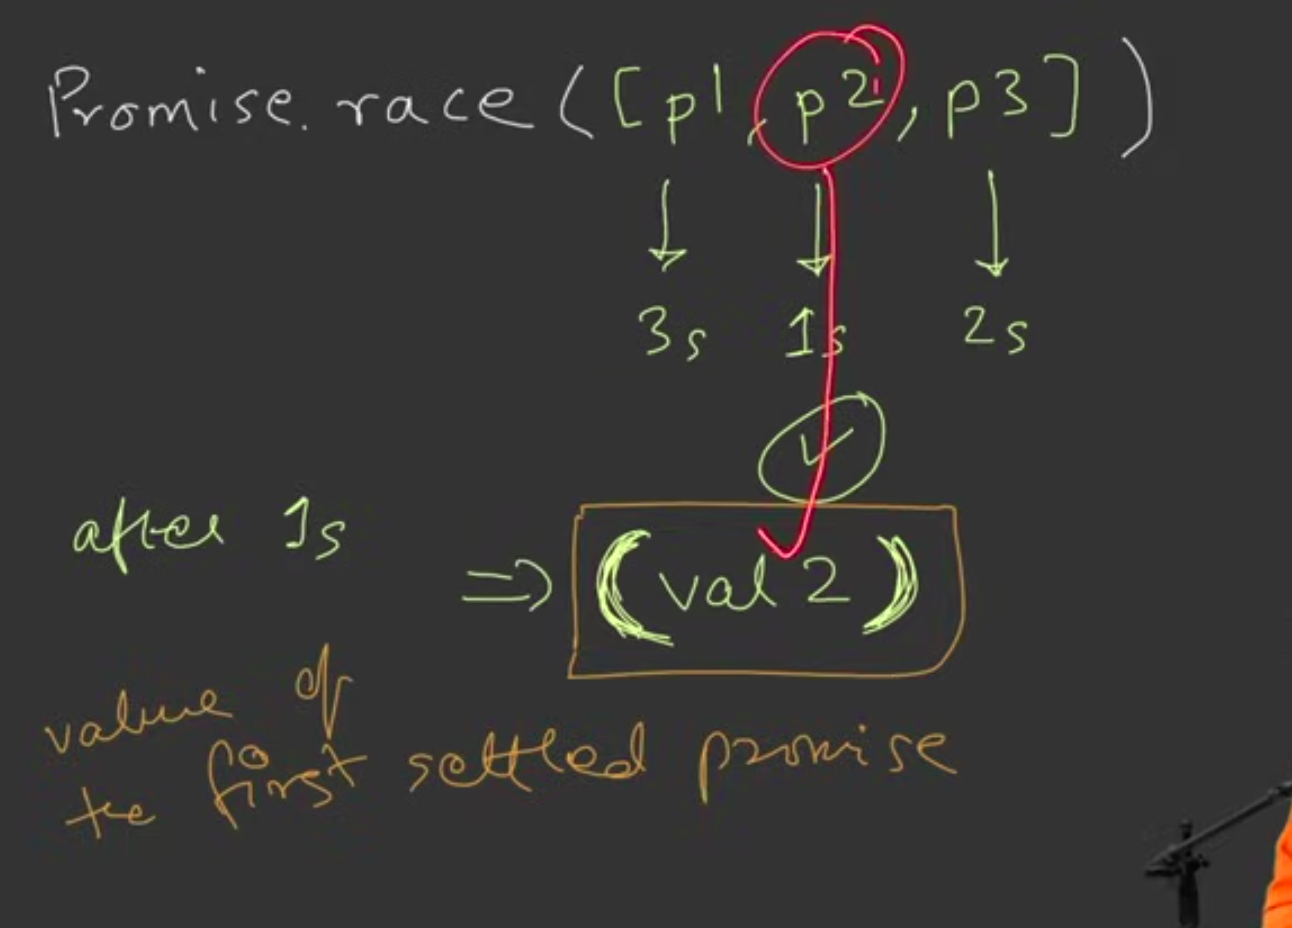 Promise.race([p1, p2, p3])
3s 1s 2s
after 1s
=> (val 2)
value of
the first settled promise